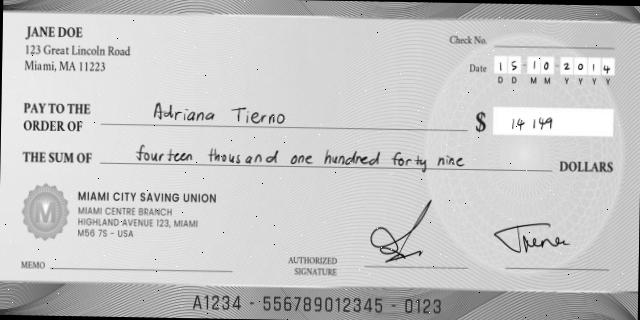 JANE DOE
123 Great Lincoln Road
Miami, MA 11223
Check No.
Date 15-10-2014
D D M M Y Y Y Y
PAY TO THE ORDER OF Adriana Tierno
$ 14 149
THE SUM OF fourteen thousand one hundred forty nine DOLLARS
M
MIAMI CITY SAVING UNION
MIAMI CENTRE BRANCH
HIGHLAND AVENUE 123, MIAMI
M56 7S - USA
MEMO
AUTHORIZED SIGNATURE
A1234 - 556789012345 - 0123